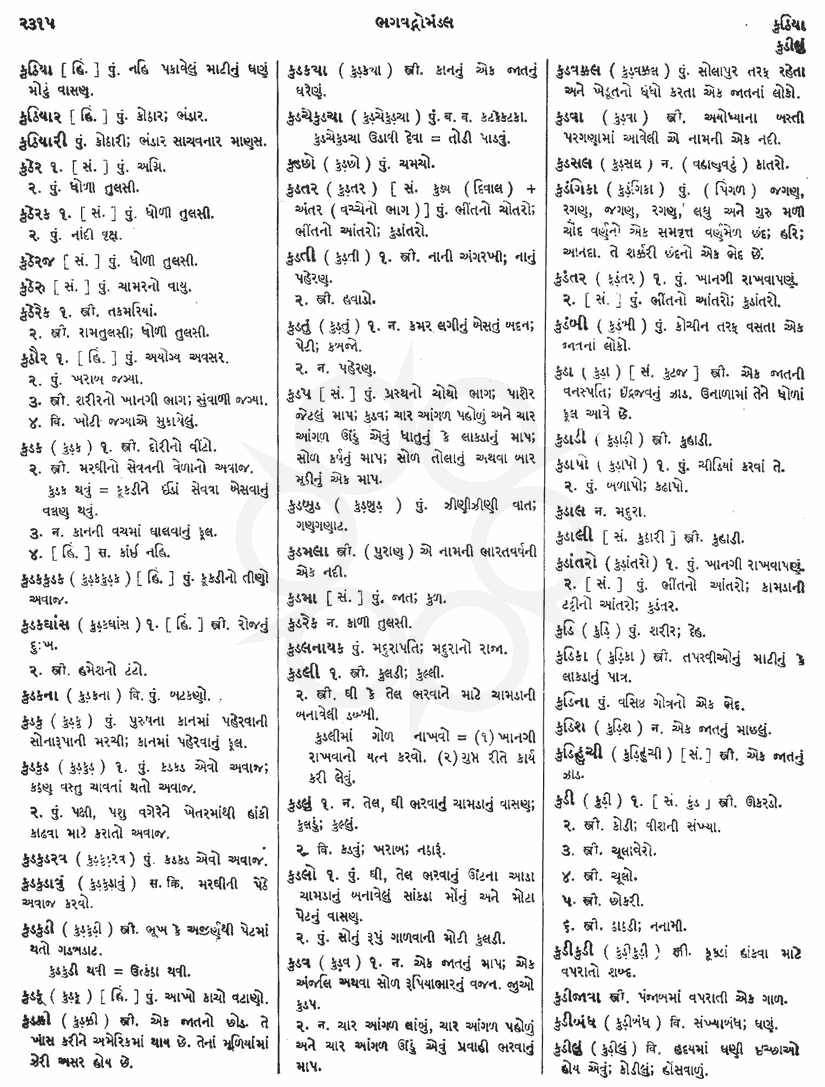 ૨૩૧૫
ભગવદ્ગોમંડલ
કુઠિયા
કુડીલું
કુઠિયા [ હિં. ] પું. નહિ પકાવેલું માટીનું ઘણું
મોટું વાસણ.
કુઠિયાર [ હિં. ] પું. કોઠાર; ભંડાર.
કુઠિયારી પું. કોઠારી; ભંડાર સાચવનાર માણસ.
કુઠેર ૧. [ સં. ] પું. અગ્નિ.
૨. પું. ધોળી તુલસી.
કુઠેરક ૧. [ સં. ] પું. ધોળી તુલસી.
૨. પું. નાંદી વૃક્ષ.
કુઠેરજ [ સં. ] પું. ધોળી તુલસી.
કુઠેરુ [ સં. ] પું. ચામરનો વાયુ.
કુઠેરેક ૧. સ્ત્રી. તકમરિયાં.
૨. સ્ત્રી. રામતુલસી; ધોળી તુલસી.
કુઠૌર ૧. [ હિં. ] પું. અયોગ્ય અવસર.
૨. પું. ખરાબ જગ્યા.
૩. સ્ત્રી. શરીરનો ખાનગી ભાગ; સુંવાળી જગ્યા.
૪. વિ. ખોટી જગ્યાએ મુકાયેલું.
કુડક ( કુડ઼ક ) ૧. સ્ત્રી. દોરીનો વીંટો.
૨. સ્ત્રી. મરઘીનો સેવનની વેળાનો અવાજ.
કુડક થવું = કૂકડીને ઈંડાં સેવવા બેસવાનું
વલણ થવું.
૩. ન. કાનની વચમાં ઘાલવાનું ફૂલ.
૪. [ હિં. ] સ. કાંઈ નહિ.
કુડકકુડક ( કુડ઼કકુડ઼ક ) [ હિં. ] પું. કૂકડીનો તીણો
અવાજ.
કુડકઘાંસ ( કુડ઼કઘાંસ ) ૧. [ હિં. ] સ્ત્રી. રોજનું
દુઃખ.
૨. સ્ત્રી. હમેશનો ટંટો.
કુડકના ( કુડ઼કના ) વિ. પું. બટકણો.
કુડકુ ( કુડ઼કુ ) પું. પુરુષના કાનમાં પહેરવાની
સોનારૂપાની મરચી; કાનમાં પહેરવાનું ફૂલ.
કુડકુડ ( કુડ઼કુડ઼ ) ૧. પું. કડકડ એવો અવાજ;
કઠણ વસ્તુ ચાવતાં થતો અવાજ.
૨. પું. પક્ષી, પશુ વગેરેને ખેતરમાંથી હાંકી
કાઢવા માટે કરાતો અવાજ.
કુડકુડરવ ( કુડ઼કુડ઼રવ ) પું. કડકડ એવો અવાજ.
કુડકુડાવું ( કુડ઼કુડાવું ) સ. ક્રિ. મરઘીની પેઠે
અવાજ કરવો.
કુડકુડી ( કુડ઼કુડ઼ી ) સ્ત્રી. ભૂખ કે અજીર્ણથી પેટમાં
થતો ગડબડાટ.
કુડકુડી થવી = ઉત્કંઠા થવી.
કુડકૂ ( કુડ઼કૂ ) [ હિં. ] પું. આખો કાચો વટાણો.
કુડક્રી ( કુડ઼ક્રી ) સ્ત્રી. એક જાતનો છોડ. તે
ખાસ કરીને અમેરિકામાં થાય છે. તેનાં મૂળિયાંમાં
ઝેરી અસર હોય છે.
કુડકયા ( કુડ઼કયા ) સ્ત્રી. કાનનું એક જાતનું
ઘરેણું.
કુડચેકુડચા ( કુડ઼ચેકુડ઼ચા ) પું. બ. વ. કટકેકટકા.
કુડચેકુડચા ઉડાવી દેવા = તોડી પાડવું.
કુડછો ( કુડ઼છો ) પું. ચમચો.
કુડતર ( કુડ઼તર ) [ સં. કુડ્ય ( દિવાલ ) +
અંતર ( વચ્ચેનો ભાગ ) ] પું. ભીંતનો ચોતરો;
ભીંતનો આંતરો; કુડાંતરો.
કુડતી ( કુડ઼તી ) ૧. સ્ત્રી. નાની અંગરખી; નાનું
પહેરણ.
૨. સ્ત્રી. હવાડો.
કુડતું ( કુડ઼તું ) ૧. ન. કમર લગીનું બેસતું બદન;
પેટી; કબજો.
૨. ન. પહેરણ.
કુડપ [ સં. ] પું. પ્રસ્થનો ચોથો ભાગ; પાશેર
જેટલું માપ; કુડવ; ચાર આંગળ પહોળું અને ચાર
આંગળ ઊંડું એવું ધાતુનું કે લાકડાનું માપ;
સોળ કર્ષનું માપ; સોળ તોલાનું અથવા બાર
મૂડીનું એક માપ.
કુડબુડ ( કુડ઼બુડ઼ ) પું. ઝીણીઝીણી વાત;
ગણગણાટ.
કુડમલા સ્ત્રી. ( પુરાણ ) એ નામની ભારતવર્ષની
એક નદી.
કુડમા [ સં. ] પું. જાત; કુળ.
કુડરેક ન. કાળી તુલસી.
કુડલનાયક પું. મદુરાપતિ; મદુરાનો રાજા.
કુડલી ૧. સ્ત્રી. કુલડી; કુલ્લી.
૨. સ્ત્રી. ઘી કે તેલ ભરવાને માટે ચામડાની
બનાવેલી ડબ્બી.
કુડલીમાં ગોળ નાખવો = (૧) ખાનગી
રાખવાનો યત્ન કરવો. (૨) ગુપ્ત રીતે કાર્ય
કરી લેવું.
કુડલું ૧. ન. તેલ, ઘી ભરવાનું ચામડાનું વાસણ;
કુલડું; કુલ્લું.
૨. વિ. કડવું; ખરાબ; નઠારૂં.
કુડલો ૧. પું. ઘી, તેલ ભરવાનું ઊંટના આડા
ચામડાનું બનાવેલું સાંકડા મોંનું અને મોટા
પેટનું વાસણ.
૨. પું. સોનું રૂપું ગાળવાની મોટી કુલડી.
કુડવ ( કુડ઼વ ) ૧. ન. એક જાતનું માપ; એક
અંજલિ અથવા સોળ રૂપિયાભારનું વજન. જુઓ
કુડપ.
૨. ન. ચાર આંગળ લાંબું, ચાર આંગળ પહોળું
અને ચાર આંગળ ઊંડું એવું પ્રવાહી ભરવાનું
માપ.
કુડવક્કલ ( કુડ઼વક્કલ ) પું. સોલાપુર તરફ રહેતા
અને ખેડૂતનો ધંધો કરતા એક જાતનાં લોકો.
કુડવા ( કુડ઼વા ) સ્ત્રી. અયોધ્યાના બસ્તી
પરગણામાં આવેલી એ નામની એક નદી.
કુડસલ ( કુડ઼સલ ) ન. ( વહાણવટું ) કાતરો.
કુડંગિકા ( કુડ઼ંગિકા ) પું. ( પિંગળ ) જગણ,
રગણ, જગણ, રગણ, લઘુ અને ગુરુ મળી
ચૌદ વર્ણનો એક સમવૃત્ત વર્ણમેળ છંદ; હરિ;
આનદા. તે શક્કરી છંદનો એક ભેદ છે.
કુડંતર ( કુડ઼ંતર ) ૧. પું. ખાનગી રાખવાપણું.
૨. [ સં. ] પું. ભીંતનો આંતરો; કુડાંતરો.
કુડંબી ( કુડ઼ંબી ) પું. કોચીન તરફ વસતા એક
જાતનાં લોકો.
કુડા ( કુડ઼ા ) [ સં. કુટજ ] સ્ત્રી. એક જાતની
વનસ્પતિ; ઇંદ્રજવનું ઝાડ. ઉનાળામાં તેને ધોળાં
ફૂલ આવે છે.
કુડાડી ( કુડ઼ાડ઼ી ) સ્ત્રી. કુહાડી.
કુડાપો ( કુડ઼ાપો ) ૧. પું. ચીડિયાં કરવાં તે.
૨. પું. બળાપો; કઢાપો.
કુડાલ ન. મદુરા.
કુડાલી [ સં. કુઠારી ] સ્ત્રી. કુહાડી.
કુડાંતરો ( કુડ઼ાંતરો ) ૧. પું. ખાનગી રાખવાપણું.
૨. [ સં. ] પું. ભીંતનો આંતરો; કામડાની
ટટ્ટીનો આંતરો; કુડંતર.
કુડિ ( કુડ઼િ ) પું. શરીર; દેહ.
કુડિકા ( કુડ઼િકા ) સ્ત્રી. તપસ્વીઓનું માટીનું કે
લાકડાનું પાત્ર.
કુડિના પું. વસિષ્ઠ ગોત્રનો એક ભેદ.
કુડિશ ( કુડ઼િશ ) ન. એક જાતનું માછલું.
કુડિહુંચી ( કુડ઼િહુંચી ) [સં.] સ્ત્રી. એક જાતનું
ઝાડ.
કુડી ( કુડ઼ી ) ૧. [ સં. કુંડ ] સ્ત્રી. ઊકરડો.
૨. સ્ત્રી. કોડી; વીશની સંખ્યા.
૩. સ્ત્રી. ચૂલાવેરો.
૪. સ્ત્રી. ચૂલો.
૫. સ્ત્રી. છોકરી.
૬. સ્ત્રી. ઠાઠડી; નનામી.
કુડીકુડી ( કુડ઼ીકુડ઼ી ) સ્ત્રી. કૂકડાં હાંકવા માટે
વપરાતો શબ્દ.
કુડીજાવા સ્ત્રી. પંજાબમાં વપરાતી એક ગાળ.
કુડીબંધ ( કુડ઼ીબંધ ) વિ. સંખ્યાબંધ; ઘણું.
કુડીલું ( કુડ઼ીલું ) વિ. હૃદયમાં ઘણી ઇચ્છાઓ
હોય એવું; કોડીલું; હોંસવાળું.